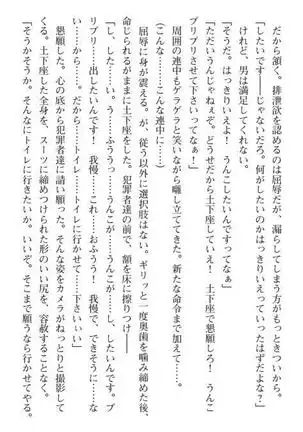 だから頷く。排泄欲を認めるのは屈辱だが、漏らしてしまう方がもっとつらいから。
「したいです――じゃないだろ。何がしたいのかはっきりいえっていったはずだよな？」
けれど、男は満足してくれない。
「そうだ。はっきりいえよ！　うんこしたいんですってなぁ」
「ただいうんじゃねぇぞ。どうせだから土下座していえ！　土下座で懇願しろ！　うんこ
ブリブリさせて下さいってなぁ！」
周囲の連中もゲラゲラと笑いながら囃し立ててきた。新たな命令まで加えて。
（こんな……こんな連中に……）
屈辱に身が震える。が、従う以外に選択肢はない。ギリッと一度奥歯を噛み締めた後、
命じられるがままに土下座をした。犯罪者達の前で、額を床に擦りつけ――
「し、した……い。う……ふううっ……うんこが……うんこが……し、したいんです。ブ
リブリ……出したいんです！　我慢……これ……おふうう！　我慢で、できそうに……な
いから……。だから……トイレ……トイレに行かせて……下さいぃい」
懇願した。心の底から犯罪者達に請い願った。そんな姿をカメラがねっとりと撮影して
くる。土下座した全身を、スーツに締めつけられた形のいい尻を、容赦することなく。
「そうかそうか。そんなにトイレに行きたいか。いいぞ。そこまで願うなら行かせてやる。